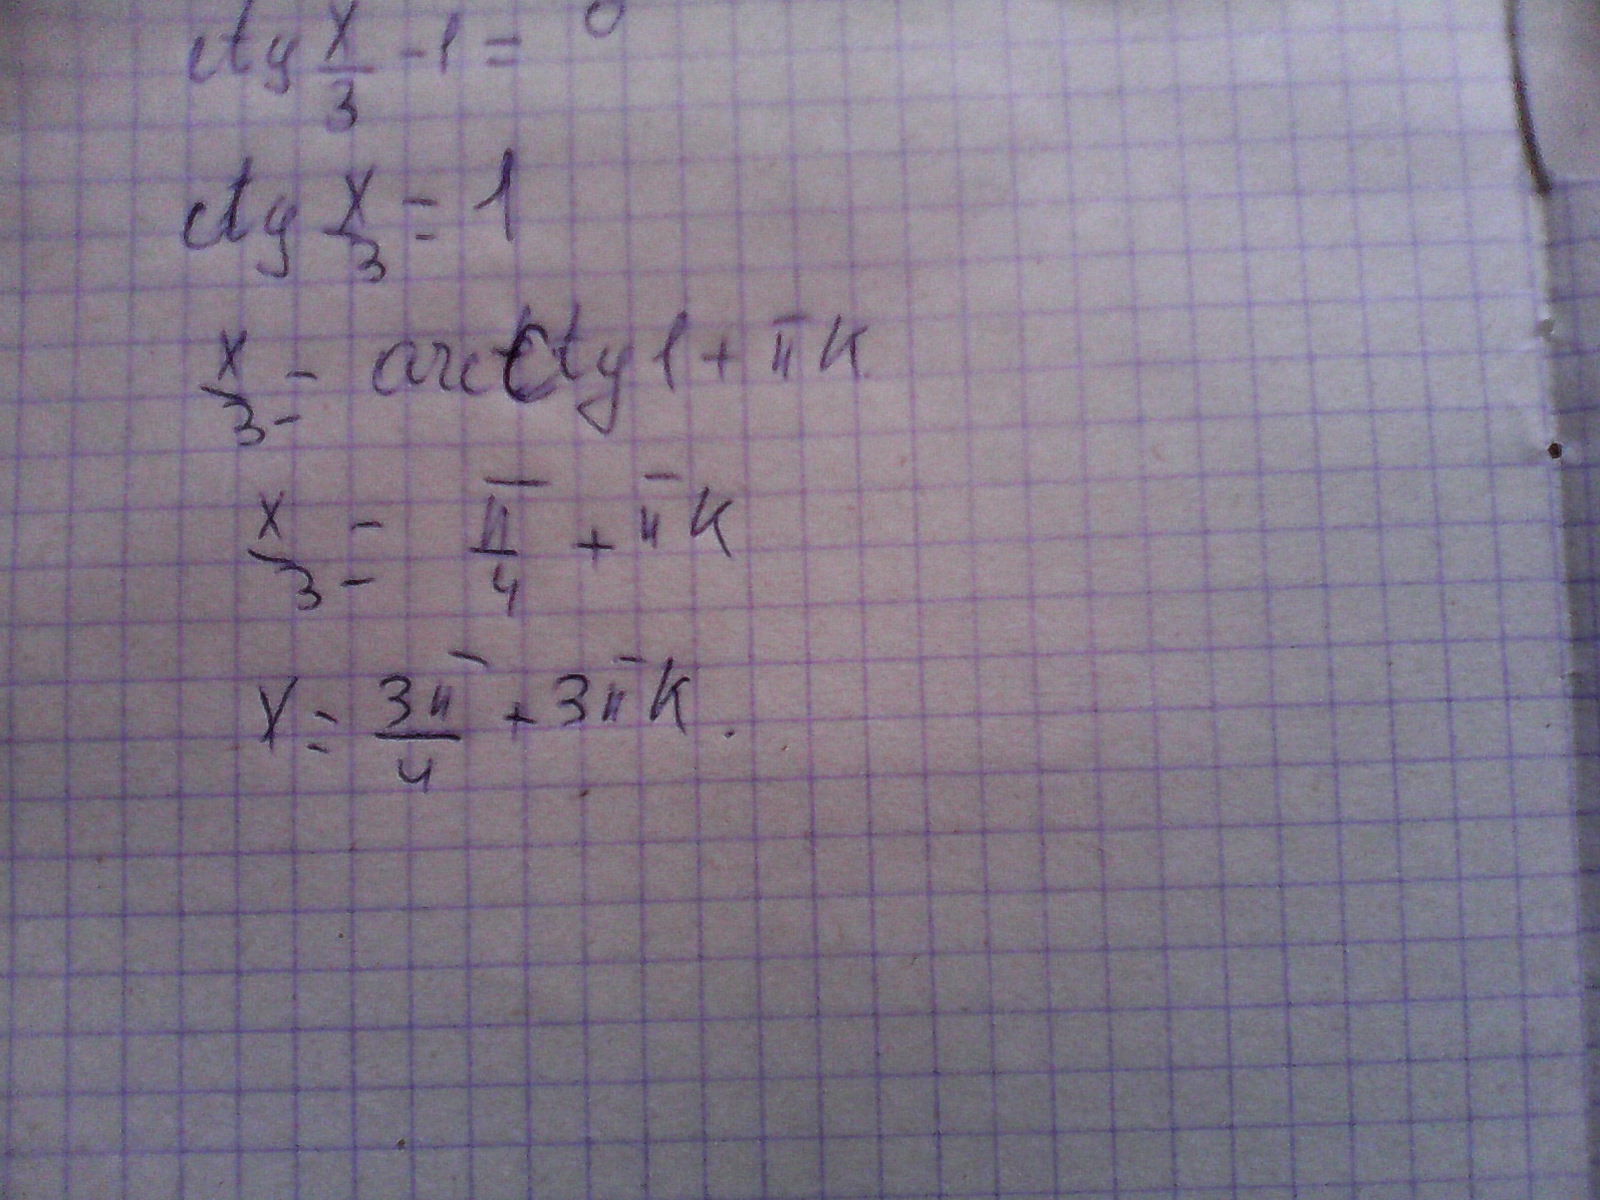 ctg x/3 - 1 = 0
ctg x/3 = 1
x/3 = arcctg 1 + πk
x/3 = π/4 + πk
x = 3π/4 + 3πk.